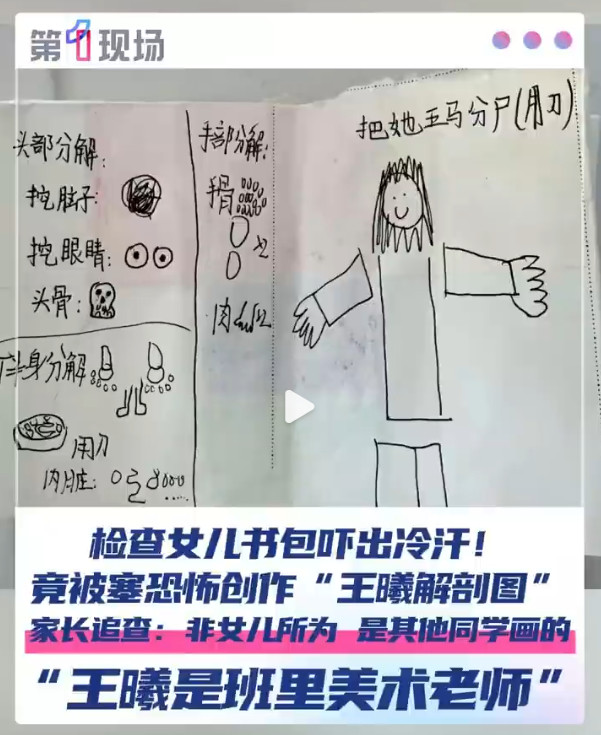 第1现场
把她五马分尸(用刀)
头部分解:
挖脑子:
挖眼睛:
头骨:
下半身分解
用刀
内脏:
手部分解:
手骨
肉
检查女儿书包吓出冷汗!
竟被塞恐怖创作“王曦解剖图”
家长追查:非女儿所为 是其他同学画的
“王曦是班里美术老师”